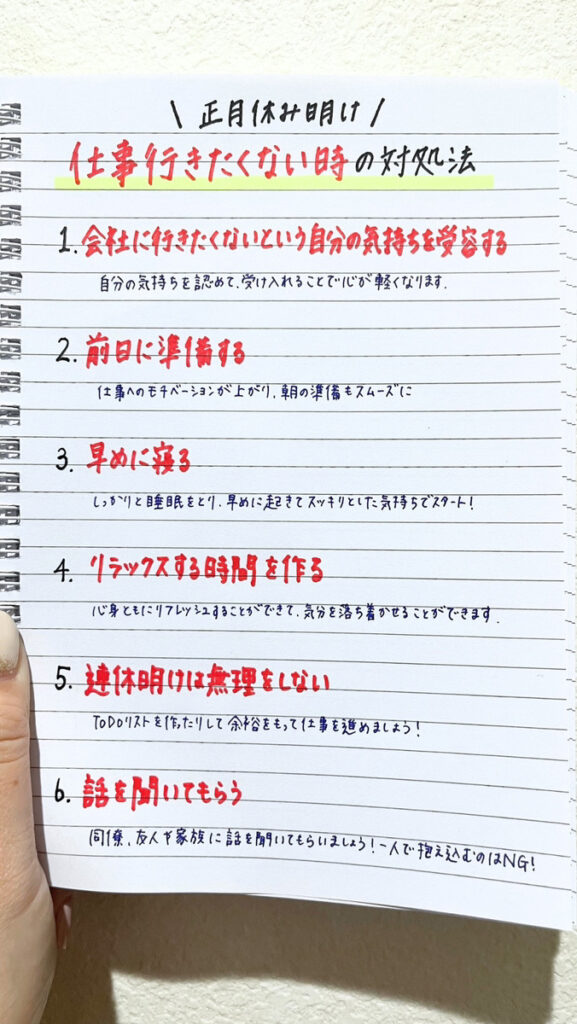 \ 正月休み明け /
仕事行きたくない時の対処法
1. 会社に行きたくないという自分の気持ちを受容する
自分の気持ちを認めて、受け入れることで心が軽くなります.
2. 前日に準備する
仕事へのモチベーションが上がり、朝の準備もスムーズに
3. 早めに寝る
しっかりと睡眠をとり、早めに起きてスッキリとした気持ちでスタート!
4. リラックスする時間を作る
心身ともにリフレッシュすることができて、気分を落ち着かせることができます.
5. 連休明けは無理をしない
ToDoリストを作ったりして余裕をもって仕事を進めましょう!
6. 話を聞いてもらう
同僚、友人や家族に話を聞いてもらいましょう!一人で抱え込むのはNG!